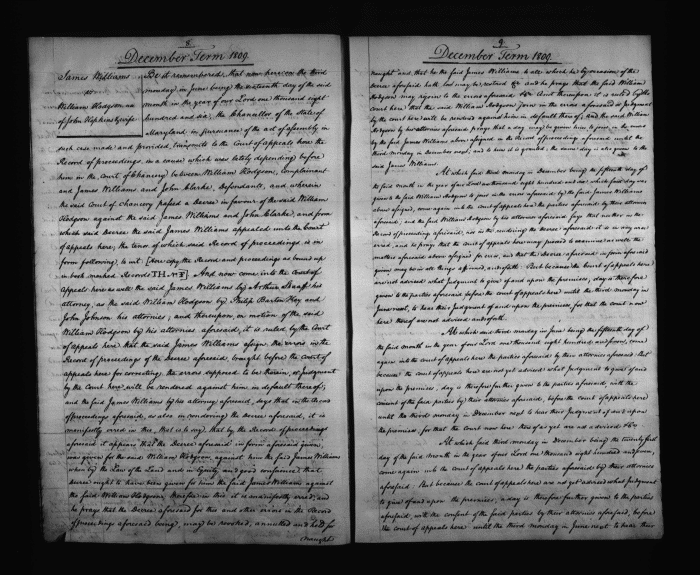 8.
December Term 1809.
James Williams
vs
William Hodgson use
of John Hopkins & wife
Be it remembered, that now here on the third
monday in June being the sixteenth day of the said
month in the year of our Lord one thousand eight
hundred and six, the Chancellor of the state of
Maryland in pursuance of the act of assembly in
such case made and provided, transmits to the Court of appeals here the
Record of proceedings, in a cause which was lately depending before
him in the Court of Chancery between William Hodgson, Complainant
and James Williams and John Clarke, Defendants, and wherein
the said Court of chancery passed a decree in favour of the said William
Hodgson against the said James Williams and John Clarke, and from
which said Decree the said James Williams appealed unto the Court
of appeals here; the tenor of which said Record of proceedings is in
form following, to wit [here copy the Record and proceedings as bound up
in book marked Records T.H. No. And now come into the Court of
appeals here as well the said James Williams by Arthur Shaaff his
attorney, as the said William Hodgson by Philip Barton Key and
John Johnson his attornies; and thereupon, on motion of the said
William Hodgson by his attornies aforesaid, it is ruled by the Court
of appeals here that the said James Williams assign the errors in the
Record of proceedings of the Decree aforesaid, brought before the court of
appeals here for correcting, the errors supposed to be therein, or Judgment
by the Court here, will be rendered against him in default thereof;
and the said James Williams by his attorney aforesaid, says that in the Record
of proceedings aforesaid, as also in rendering the Decree aforesaid, it is
manifestly erred in this, that is to say, that by the Record of proceedings
aforesaid it appears that the Decree aforesaid in form aforesaid given,
was given for the said William Hodgson, against him the said James Williams
when by the Law of the Land and in Equity and good conscience that
decree ought to have been given for him the said James Williams against
the said William Hodgson, therefore in this it is manifestly erred; and
he prays that the Decree aforesaid for this and other errors in the Record
of proceedings aforesaid being, may be revoked, annulled and held for
(naught)
9.
December Term 1809
naught and, that he the said James Williams to all which he by occasion of the
decree aforesaid hath lost may be restored &c and he prays that the said William
Hodgson may rejoin to the errors aforesaid &c And thereupon it is ruled by the
court here that the said William Hodgson join in the errors aforesaid or Judgment
by the court here will be rendered against him in default thereof; and the said William
Hodgson by his attornies aforesaid prays that a day may be given him to join in the errors
by the said James Williams above assigned in the Record of proceedings aforesaid until the
third monday in December next; and to him it is granted, the same day is also given to the
said James Williams.
At which said third monday in December being the fifteenth day of
the said month in the year of our Lord one thousand eight hundred and six, which said day was
given to the said William Hodgson to join in the errors aforesaid by the said James Williams
above assigned, come again into the court of appeals here the parties aforesaid by their attornies
aforesaid; and the said William Hodgson by his attornies aforesaid says that neither in the
Record of proceedings aforesaid, nor in the rendering the Decree aforesaid it is in any wise
erred, and he prays that the court of appeals here may proceed to examine as well the
matters aforesaid above assigned for error, and that the Decree aforesaid in form aforesaid
given may be in all things affirmed, and so forth. But because the court of appeals here
are not advised what judgment to give of and upon the premises, day is therefore
given to the parties aforesaid before the court of appeals here until the third monday in
June next, to hear their Judgment of and upon the premises, for that the court now
here thereof are not advised and so forth.
At which said third monday in June being the fifteenth day of
the said month in the year of our Lord one thousand eight hundred and seven, come
again into the court of appeals here the parties aforesaid by their attornies aforesaid. But
because the court of appeals here are not yet advised what Judgment to give of and
upon the premises, day is therefore further given to the parties aforesaid, with the
consent of the said parties by their attornies aforesaid, before the court of appeals here
until the third monday in December next to hear their Judgment of and upon
the premises, for that the court now here thereof as yet are not advised &c.
At which said third monday in December being the twenty first
day of the said month in the year of our Lord one thousand eight hundred and seven,
come again into the court of appeals here the parties aforesaid by their attornies
aforesaid. But because the court of appeals here are not yet advised what judgment
to give of and upon the premises; a day is therefore further given to the parties
aforesaid, with the consent of the said parties by their attornies aforesaid, before
the court of appeals here until the third monday in June next to hear their